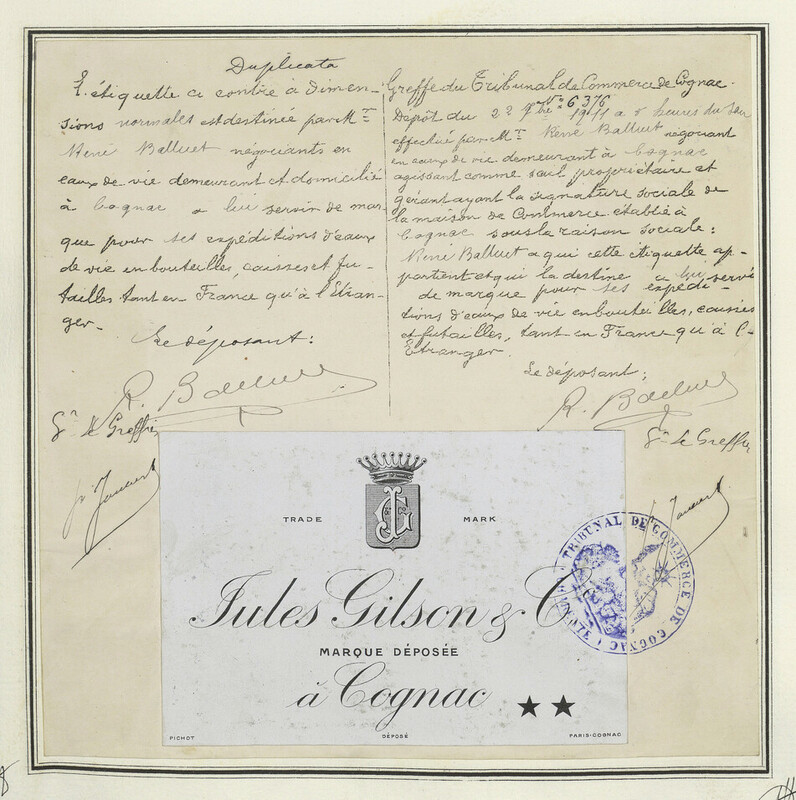 Duplicata
L'étiquette ci contre à Dimen-
sions normales est destinée par Mr
René Balluet négociants en
eaux de vie demeurant et domicilié
à Cognac a lui servir de mar-
que pour ses expéditions d'eaux
de vie en bouteilles, caisses et fu-
tailles tant en France qu'à l'étran-
ger.
Le déposant:
R. Balluet
Le Greffier
Greffe du Tribunal de Commerce de Cognac.
No 6376
Dépôt du 22 1911 a heures du soir
effectué par Mr René Balluet négociant
en eaux de vie demeurant à Cognac
agissant comme seul propriétaire et
gérant ayant la signature sociale de
la maison de Commerce établie à
Cognac sous la raison sociale:
René Balluet a qui cette étiquette ap-
partient et qui la destine a lui servir
de marque pour ses expédi-
tions d'eaux de vie en bouteilles, caisses
et futailles, tant en France qu'à l'-
Etranger.
Le déposant;
R. Balluet
Le Greffier
TRADE MARK
JG
Jules Gilson & C
MARQUE DÉPOSÉE
à Cognac
PICHOT DÉPOSÉ PARIS-COGNAC
TRIBUNAL DE COMMERCE DE COGNAC